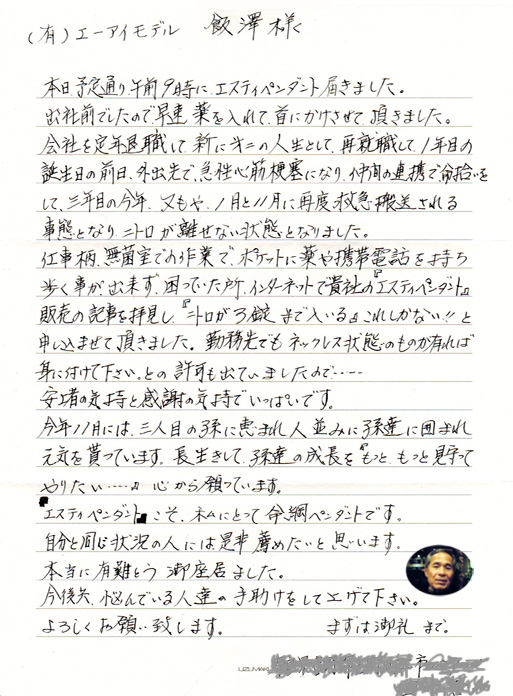 (有)エーアイモデル 飯澤様
本日、予定通り午前9時に、エスティペンダント届きました。
出社前でしたので早速薬を入れて、首にかけさせて頂きました。
会社を定年退職して新に第二の人生として、再就職して、1年目の
誕生日の前日、外出先で、急性心筋梗塞になり、仲間の連携で命拾いを
して、三年目の今年、又もや、1月と11月に再度、救急搬送される
事態となり、ニトロが離せない状態となりました。
仕事柄、無菌室での作業で、ポケットに薬や携帯電話を持ち
歩く事が出来ず、困っていた所、インターネットで貴社の『エスティペンダント』
販売の記事を拝見し、『ニトロが3錠まで入いる』これしかない!!と
申し込ませて頂きました。勤務先でもネックレス状態のものが有れば
身に付けて下さい。との許可も出ていましたので・・・・・
安堵の気持と感謝の気持でいっぱいです。
今年11月には、三人目の孫に恵まれ人並みに孫達に囲まれ
元気を貰っています。長生きして、孫達の成長を『もっと、もっと見守って
やりたい・・・・・』心から願っています。
『エスティペンダント』こそ、私にとって命綱ペンダントです。
自分と同じ状況の人には是非薦めたいと思います。
本当に有難とう御座居ました。
今後共、悩んでいる人達の手助けをして上げて下さい。
よろしくお願い致します。 まずは御礼まで。
市
UZUMAKI